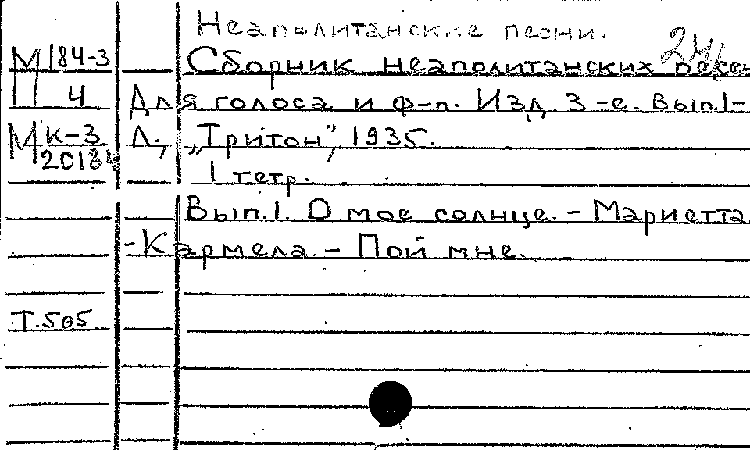 Неаполитанские песни.
М 184-3
4
Сборник неаполитанских песен
Для голоса и ф-п. Изд. 3-е. Вып.1-
М К-3
Л., „Тритон”, 1935.
1 тетр.
Вып.1. О мое солнце. - Мариетта.
-Кармела. - Пой мне.
Т.505